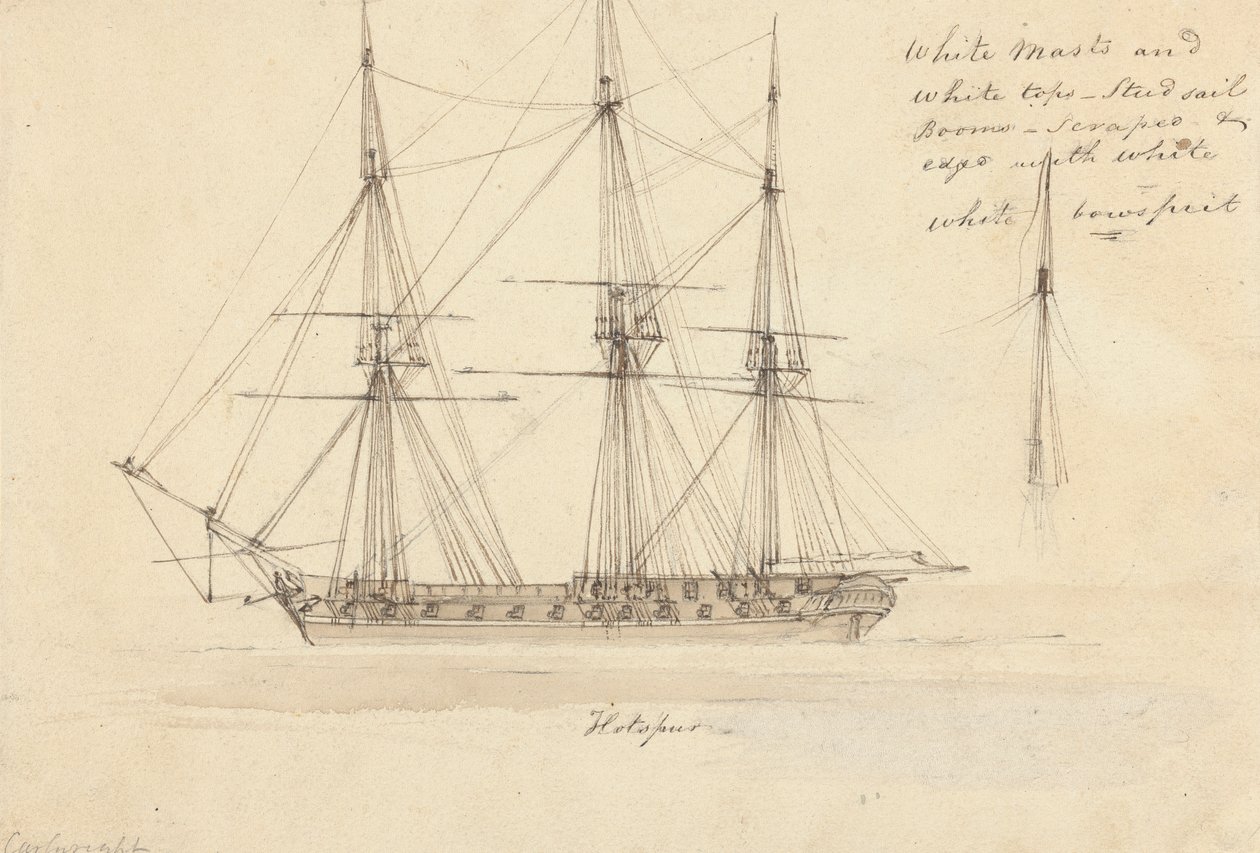 White Masts and
white tops - Stud sail
Booms - Scraped &
edged with white
white bowsprit
Hotspur
Cartwright